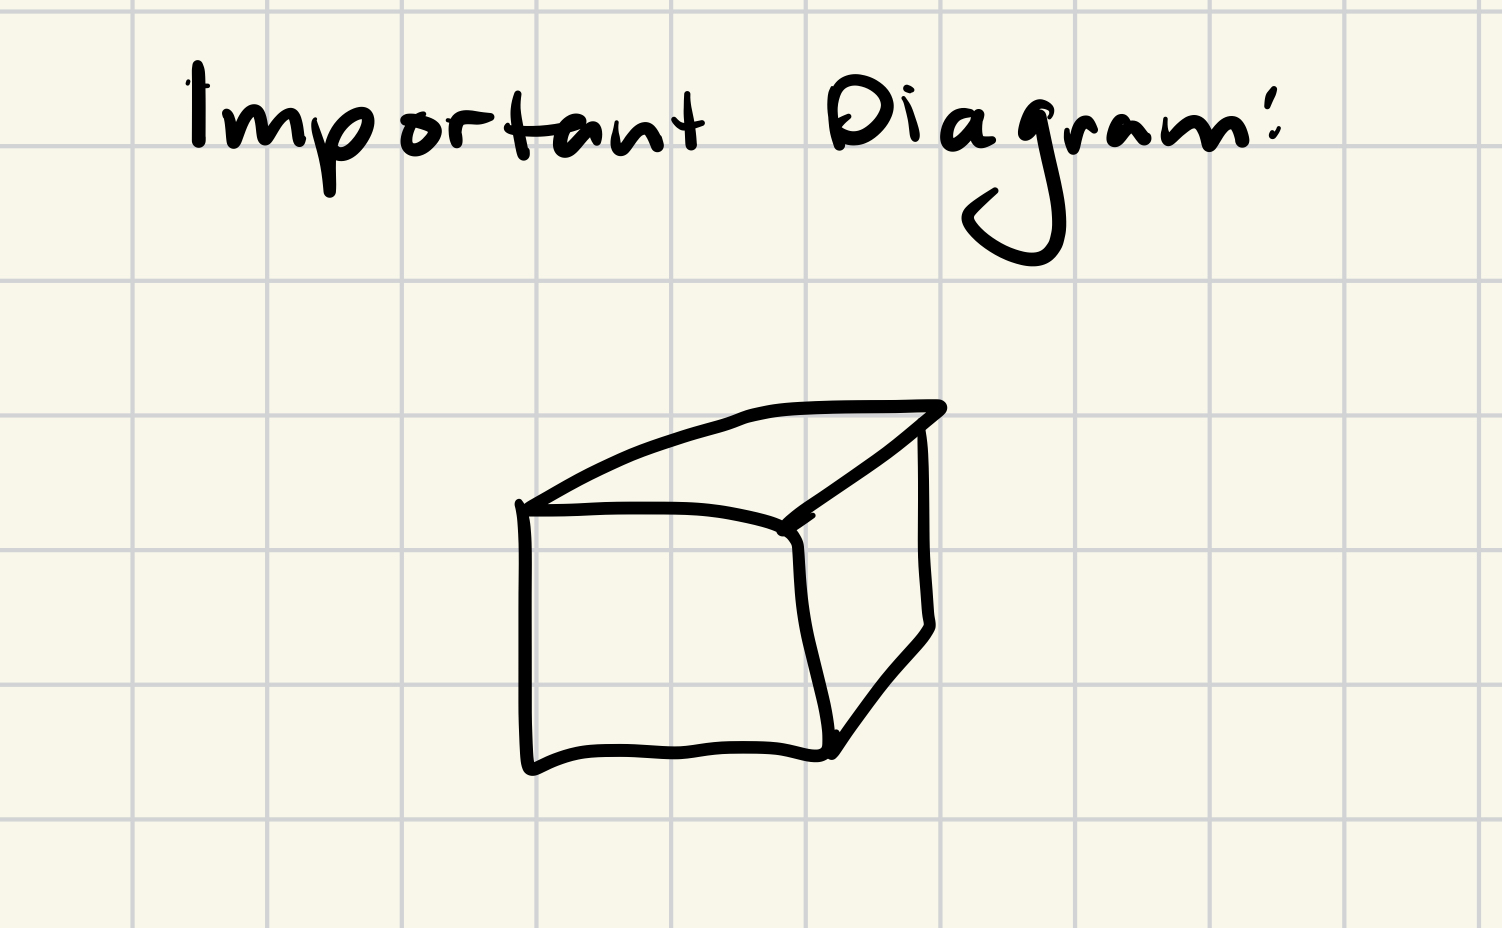 Important Diagram: